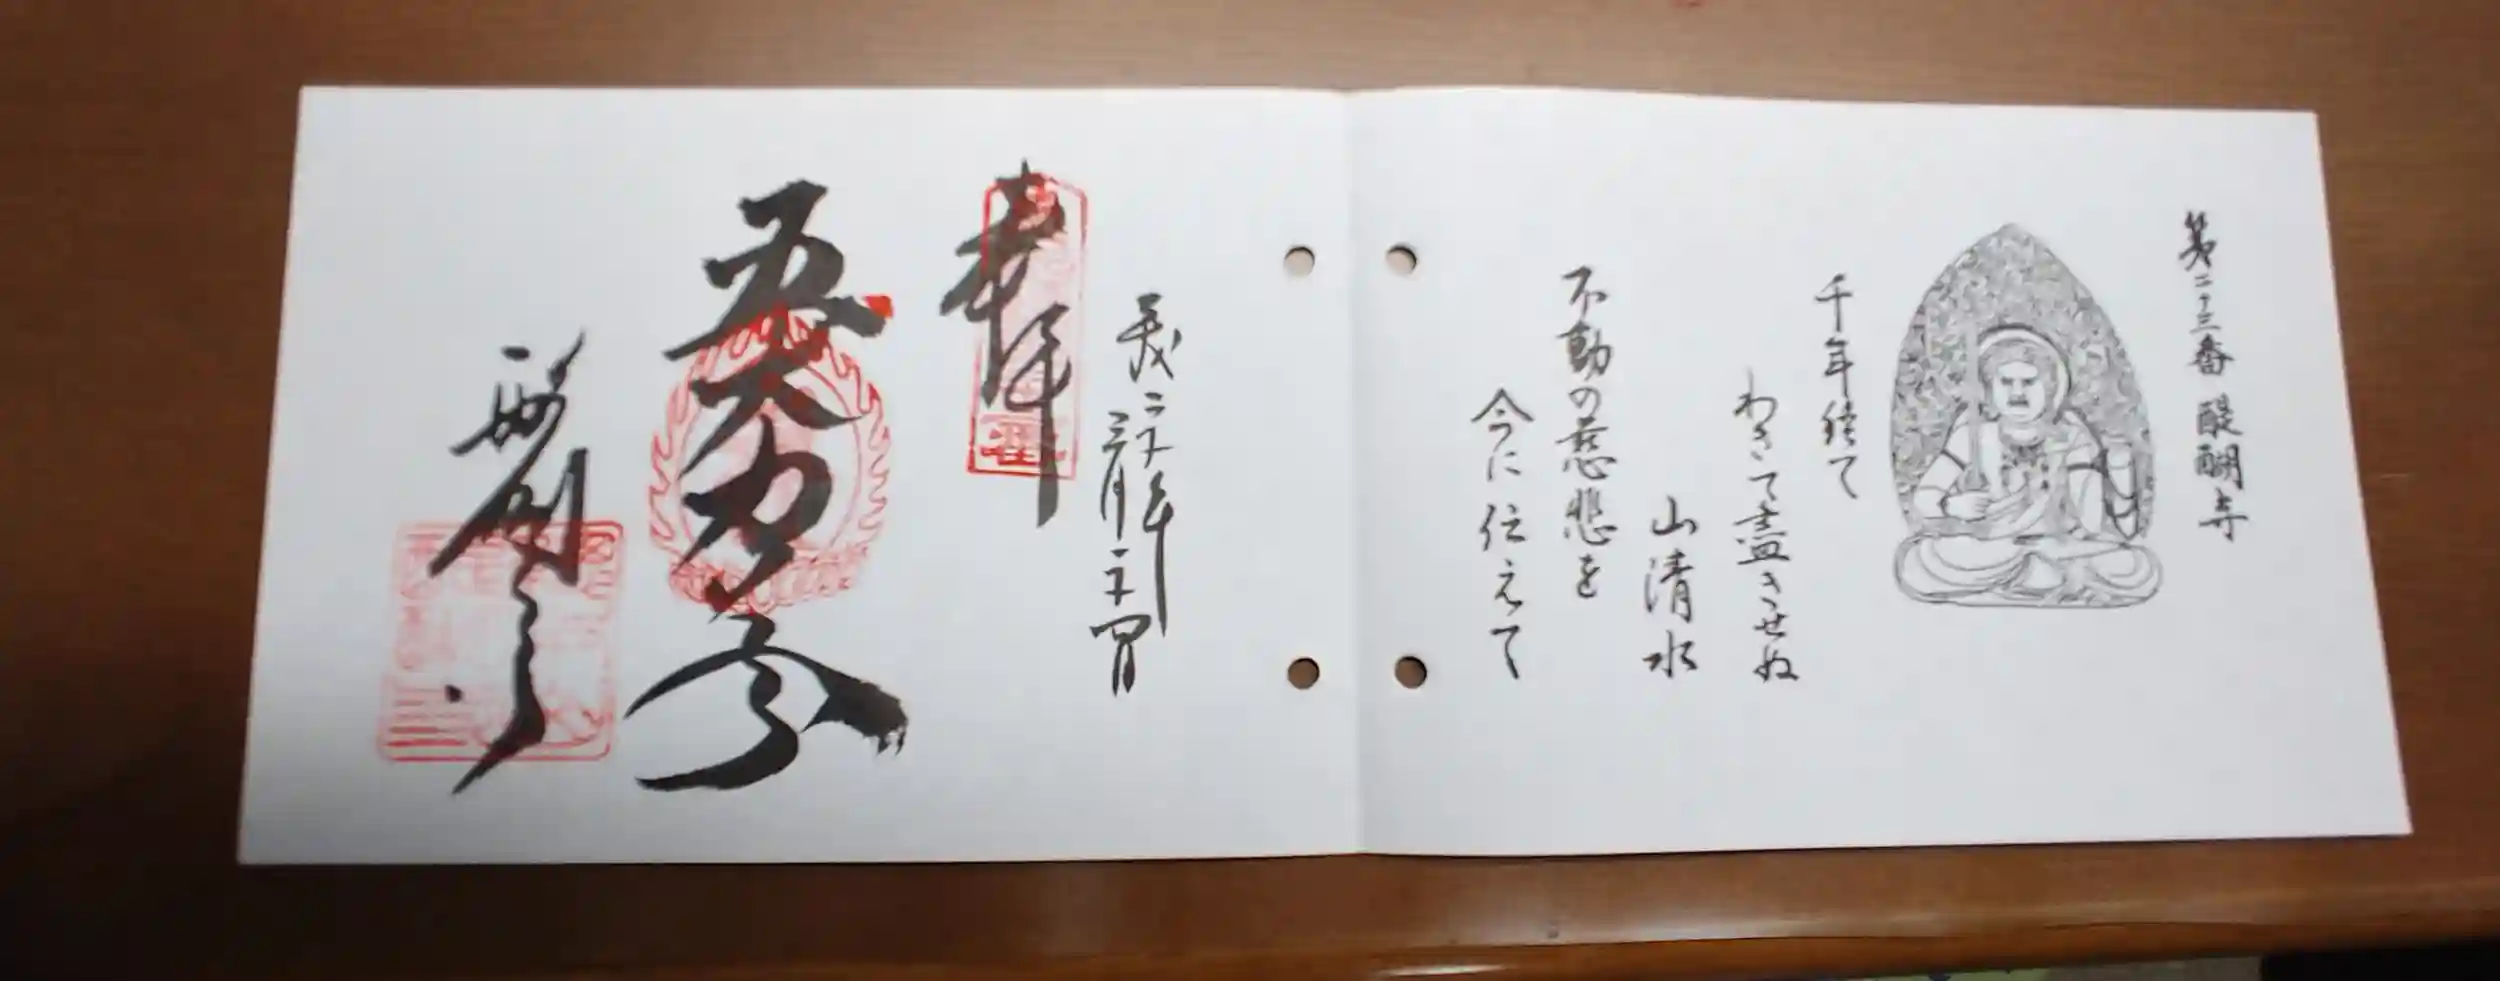 第二十三番 醍醐寺
千年経て
わきて盡きせぬ
山清水
不動の慈悲を
今に伝えて
二十年
三月二十四日
奉拝
五大力尊
醍醐寺